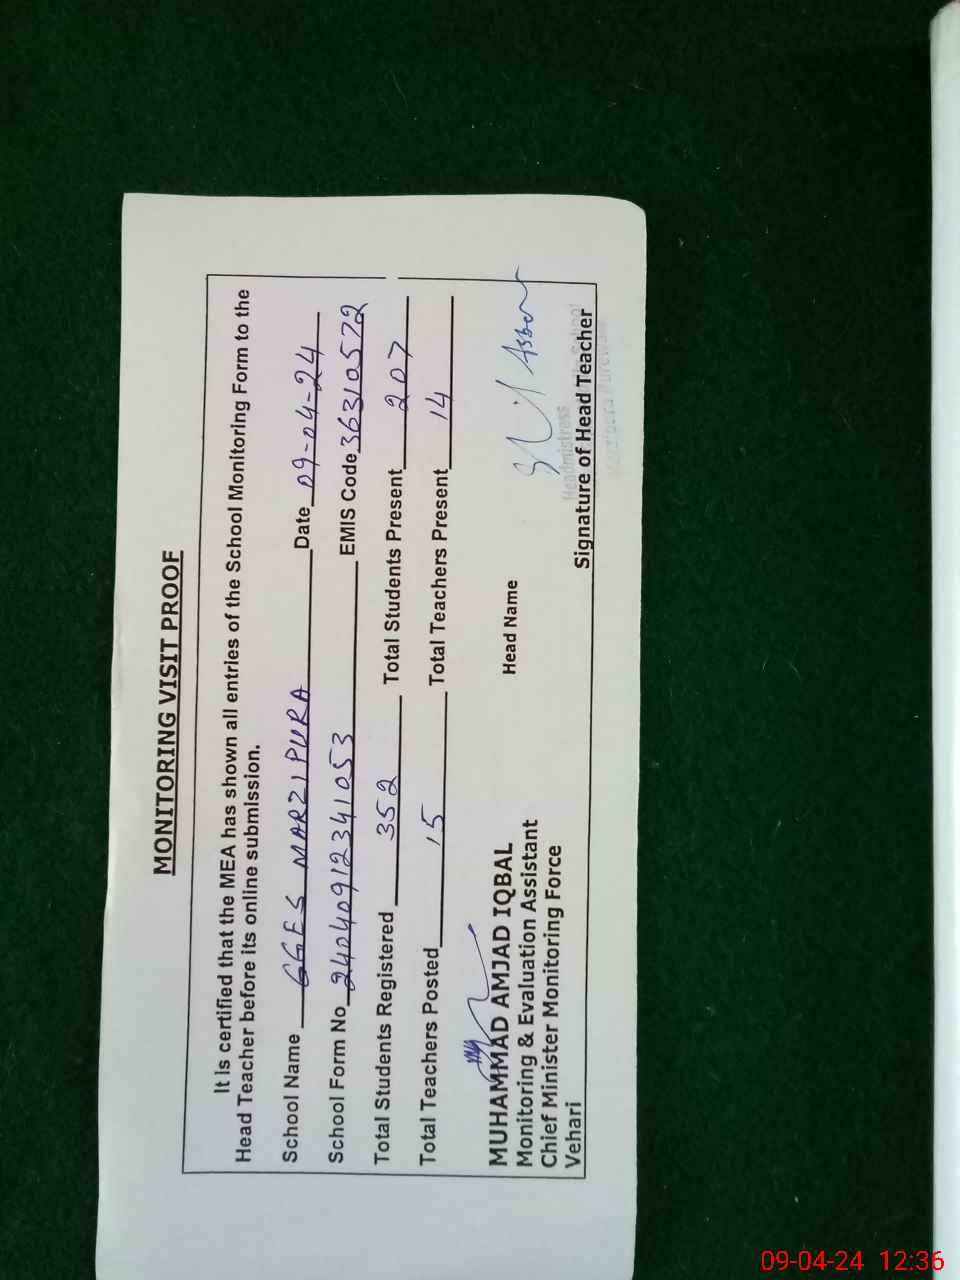 MONITORING VISIT PROOF
It is certified that the MEA has shown all entries of the School Monitoring Form to the
Head Teacher before its online submission.
School Name GGES MARZIPURA Date 09-04-24
School Form No 24040912341053 EMIS Code 36310572
Total Students Registered 352 Total Students Present 207
Total Teachers Posted 15 Total Teachers Present 14
MUHAMMAD AMJAD IQBAL
Monitoring & Evaluation Assistant
Chief Minister Monitoring Force
Vehari
Head Name
Headmistress
Signature of Head Teacher
09-04-24 12:36